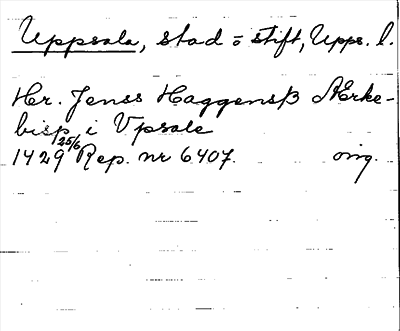 Uppsala, stad o stift, Upps. l.
Hr. Jenss Haggensß Ærke-
bisp i Vpsale
1429 25/6 Rep. nr 6407. orig.